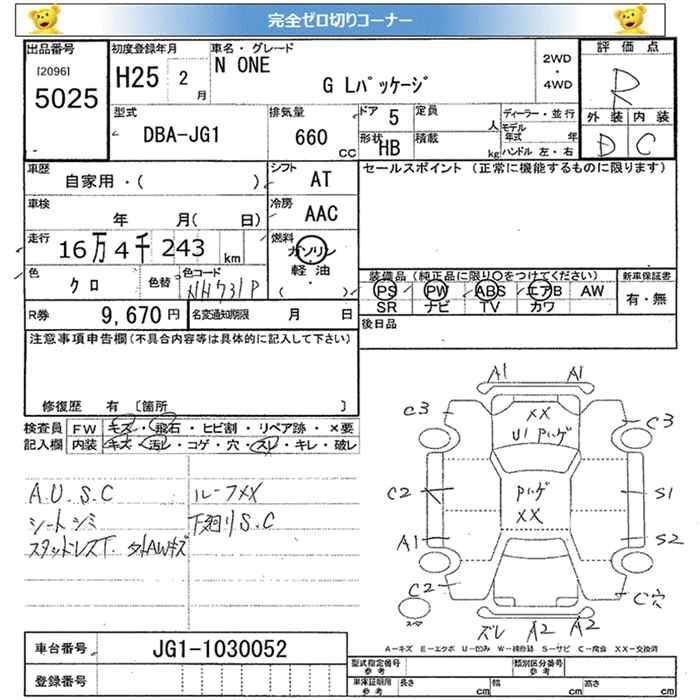 完全ゼロ切りコーナー
出品番号
[2096]
5025
初度登録年月
H25 2 月
車名・グレード
N ONE
G Lパッケージ
2WD
・
4WD
評価点
R
外装 内装
D C
型式
DBA-JG1
排気量
660 cc
ドア 5
形状 HB
定員 人
積載 kg
ディーラー・並行
モデル年式 年
ハンドル 左・右
車歴
自家用・( )
シフト AT
セールスポイント (正常に機能するものに限ります)
車検
年 月( 日)
冷房 AAC
走行
16万4千243 km
燃料
ガソリン
軽油
( ・ )
色
クロ
色替
色コード
NH731P
装備品(純正品に限り○をつけてください)
PS PW ABS エアB AW
SR ナビ TV カワ
新車保証書
有・無
R券 9,670円
名変通知期限 月 日
後日品
注意事項申告欄(不具合内容等は具体的に記入して下さい)
修復歴 有 〔箇所 〕
検査員 FW キズ・飛石・ヒビ割・リペア跡・×要
記入欄 内装 キズ・汚レ・コゲ・穴・スレ・キレ・破レ
A.U.S.C
シートシミ
スタッドレスT. タトAWキズ
ルーフXX
下廻りS.C
A1 A1
C3 C3
XX
U1 Pハゲ
C2 Pハゲ S1
XX
A1 S2
C2 C穴
スレ A2 A2
A-キズ E-エクボ U-凹み W-補修跡 S-サビ C-腐食 XX-交換済
車台番号 JG1-1030052
登録番号
型式指定番号 参考
類別区分番号 参考
車庫証明用 参考
長さ cm 幅 cm 高さ cm